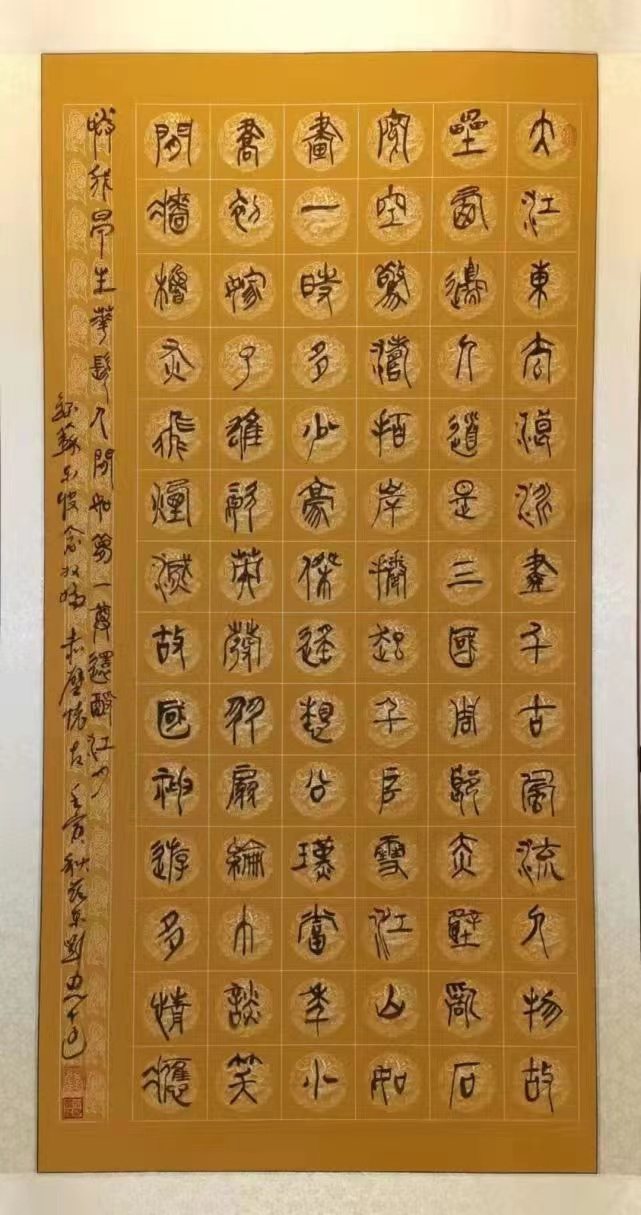 大江東去浪淘盡千古風流人物故
壘西邊人道是三國周郎赤壁亂石
穿空驚濤拍岸捲起千堆雪江山如
畫一時多少豪傑遙想公瑾當年小
喬初嫁了雄姿英發羽扇綸巾談笑
間檣櫓灰飛煙滅故國神遊多情應
笑我早生華髮人間如夢一尊還酹江月
錄蘇東坡念奴嬌赤壁懷古壬寅秋於京劉